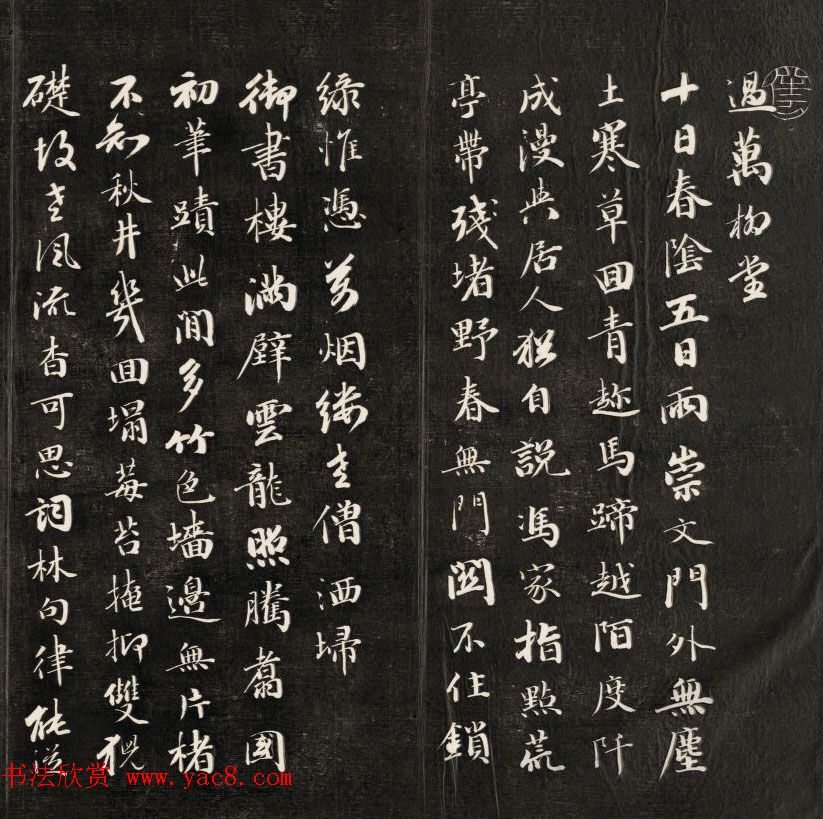 過萬柳堂
十日春陰五日雨崇文門外無塵
土寒草回青趂馬蹄越陌度阡
成漫與居人猶自說馮家指點荒
亭帶殘堵野春無門關不住鎖
綠惟憑万烟縷老僧洒埽
御書樓滿壁雲龍照騰翥國
初筆蹟此間多竹色墻邊無片楮
不知秋井幾回塌莓苔掩抑雙
礎故老風流杳可思詞林句律能
书法欣赏 www.yac8.com